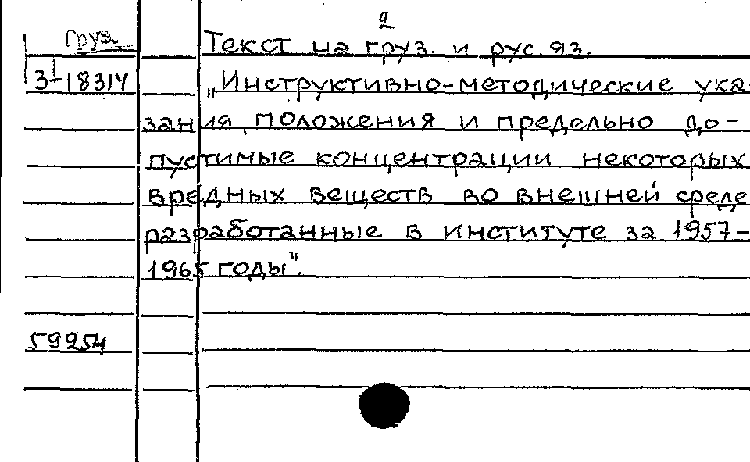 2
Груз. Текст на груз. и рус. яз.
3-18314 „Инструктивно-методические ука-
зания, положения и предельно до-
пустимые концентрации некоторых
вредных веществ во внешней среде
разработанные в институте за 1957-
1965 годы".
59254